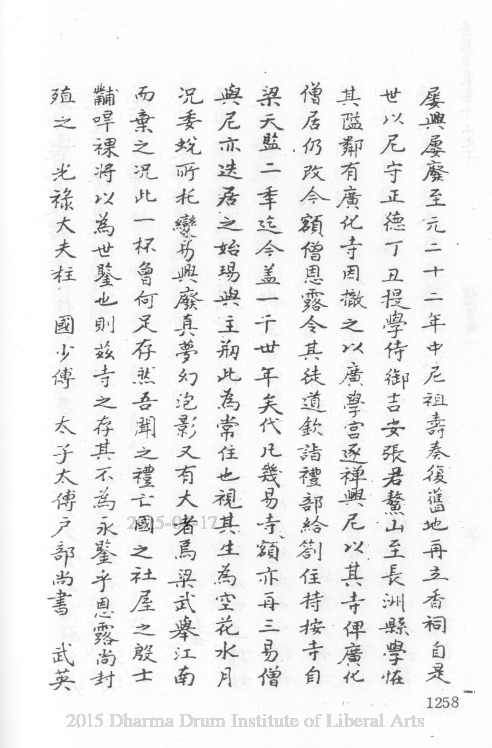 屢興屢廢至元二十二年中尼祖壽奏復舊地再立香祠自是
世以尼守正德丁丑提學侍御吉安張君鰲山至長洲縣學恠
其隘鄰有廣化寺因撤之以廣學宮逐禪興尼以其寺俾廣化
僧居仍改今額僧恩露令其徒道欽詣禮部給劄住持按寺自
梁天監二年迄今盖一千卅年矣代凡幾易寺額亦再三易僧
與尼亦迭居之始瑒與主剏此為常住也視其生為空花水月
况委蛻所托變易興廢真夢幻泡影又有大者焉梁武舉江南
而棄之况此一杯曾何足存然吾聞之禮亡國之社屋之殷士
黼冔祼將以為世鑒也則兹寺之存其不為永鑒乎恩露尚封
殖之 光祿大夫柱 國少傅 太子太傅戶部尚書 武英
1258
2015-09-17
2015 Dharma Drum Institute of Liberal Arts